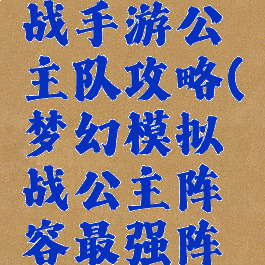 战手游公
主队攻略(
梦幻模拟
战公主阵
容最强阵